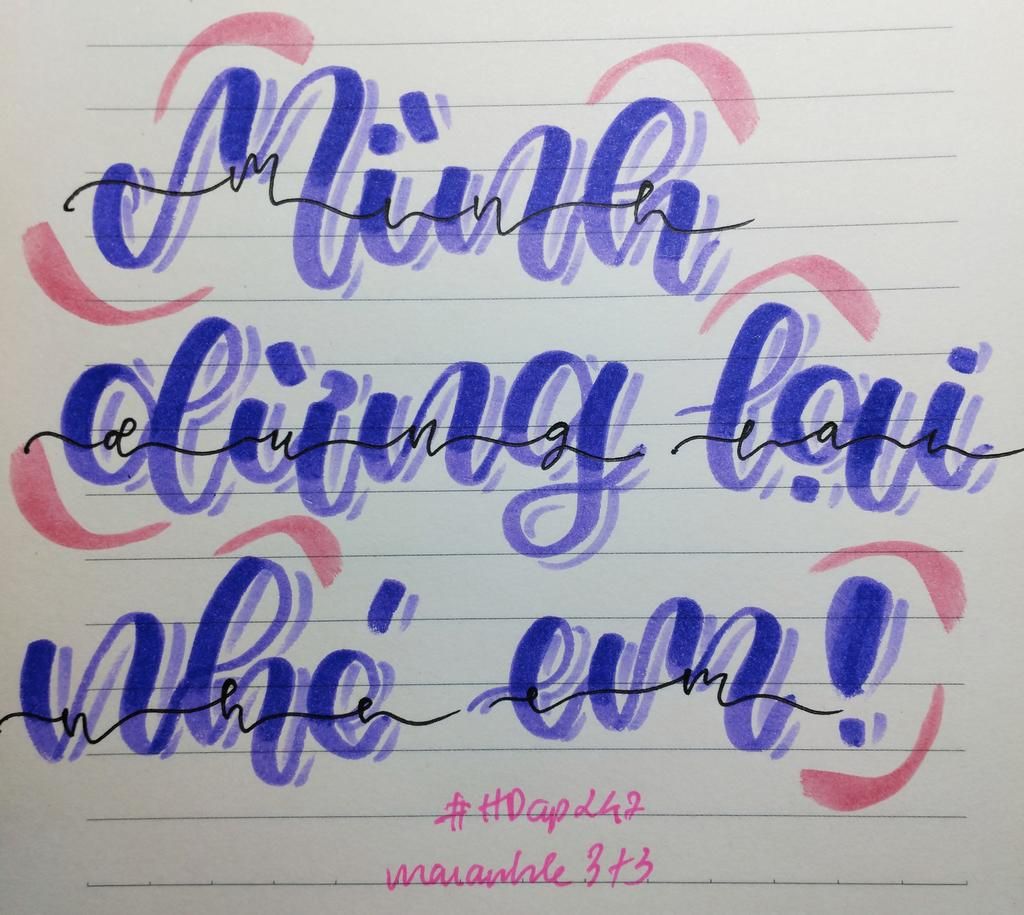 Mình
minh
dừng lại
dung lai
nhé em!
nhe em
#HDap247